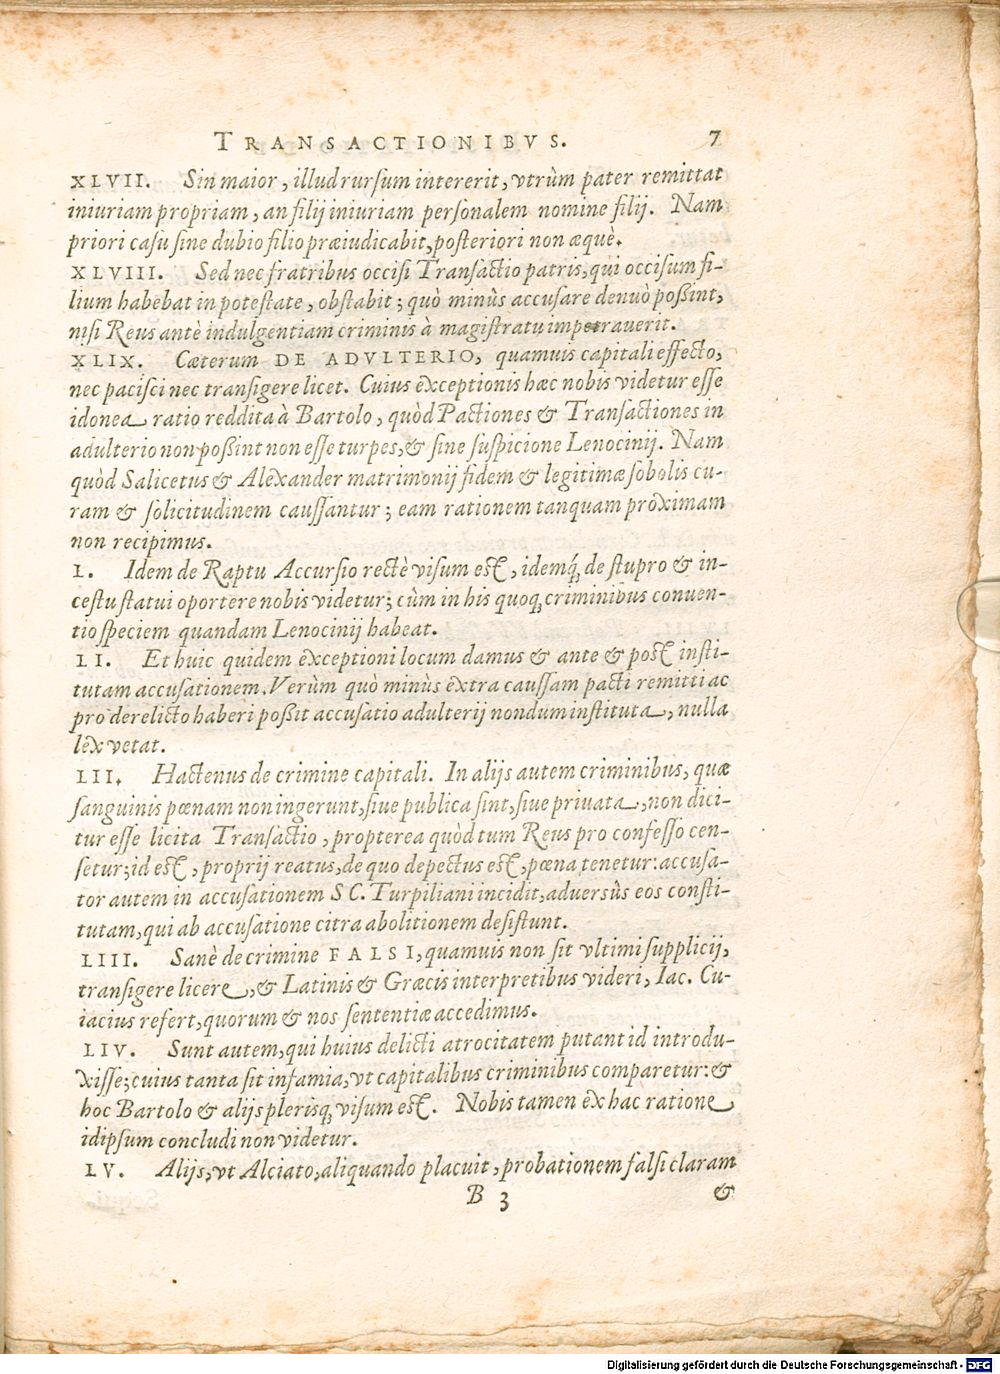 TRANSACTIONIBVS. 7
XLVII. Sin maior, illud rursum intererit, vtrùm pater remittat
iniuriam propriam, an filij iniuriam personalem nomine filij. Nam
priori casu sine dubio filio præiudicabit, posteriori non æquè.
XLVIII. Sed nec fratribus occisi Transactio patris, qui occisum fi-
lium habebat in potestate, obstabit; quò minùs accusare denuò possint,
nisi Reus antè indulgentiam criminis à magistratu impetrauerit.
XLIX. Cæterum DE ADVLTERIO, quamuis capitali effecto,
nec pacisci nec transigere licet. Cuius exceptionis hæc nobis videtur esse
idonea ratio reddita à Bartolo, quòd Pactiones & Transactiones in
adulterio non possint non esse turpes, & sine suspicione Lenocinij. Nam
quòd Salicetus & Alexander matrimonij fidem & legitimæ sobolis cu-
ram & solicitudinem caussantur; eam rationem tanquam proximam
non recipimus.
L. Idem de Raptu Accursio rectè visum est, idemq́; de stupro & in-
cestu statui oportere nobis videtur; cùm in his quoq; criminibus conuen-
tio speciem quandam Lenocinij habeat.
LI. Et huic quidem exceptioni locum damus & ante & post insti-
tutam accusationem. Verùm quò minùs extra caussam pacti remitti ac
pro derelicto haberi possit accusatio adulterij nondum instituta, nulla
lex vetat.
LII. Hactenus de crimine capitali. In alijs autem criminibus, quæ
sanguinis pœnam non ingerunt, siue publica sint, siue priuata, non dici-
tur esse licita Transactio, propterea quòd tum Reus pro confesso cen-
setur; id est, proprij reatus, de quo depectus est, pœna tenetur: accusa-
tor autem in accusationem SC. Turpiliani incidit, aduersùs eos consti-
tutam, qui ab accusatione citra abolitionem desistunt.
LIII. Sanè de crimine FALSI, quamuis non sit vltimi supplicij,
transigere licere, & Latinis & Græcis interpretibus videri, Iac. Cu-
iacius refert, quorum & nos sententiæ accedimus.
LIV. Sunt autem, qui huius delicti atrocitatem putant id introdu-
xisse; cuius tanta sit infamia, vt capitalibus criminibus comparetur: &
hoc Bartolo & alijs plerisq; visum est. Nobis tamen ex hac ratione
idipsum concludi non videtur.
LV. Alijs, vt Alciato, aliquando placuit, probationem falsi claram
B 3 &
Digitalisierung gefördert durch die Deutsche Forschungsgemeinschaft - DFG